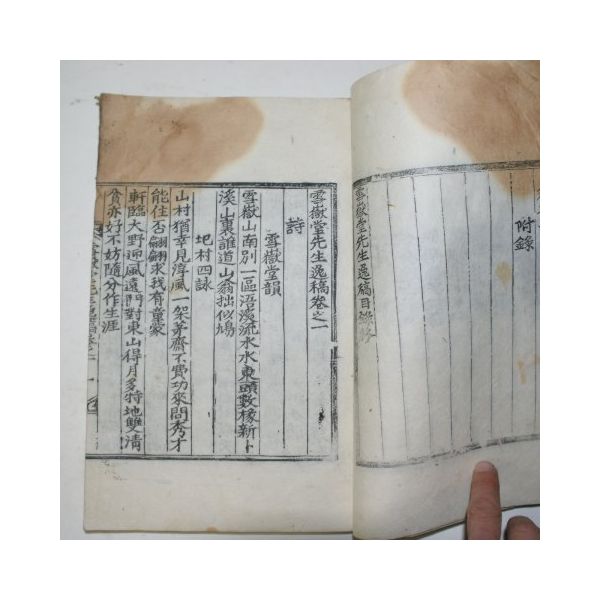 附錄
雪嶽堂先生逸稿目錄終
雪嶽堂先生逸稿卷之一
詩
雪嶽堂韻
雪嶽山南別一區浯溪流水水東頭數椽新卜
溪山裏誰道山翁拙似鳩
圯村四詠
山村猶幸見淳風一架茅齋不費功來問秀才
能住否翩翩求我有童蒙
軒臨大野迎風遠門對東山得月多特地雙淸
貧亦好不妨隨分作生涯